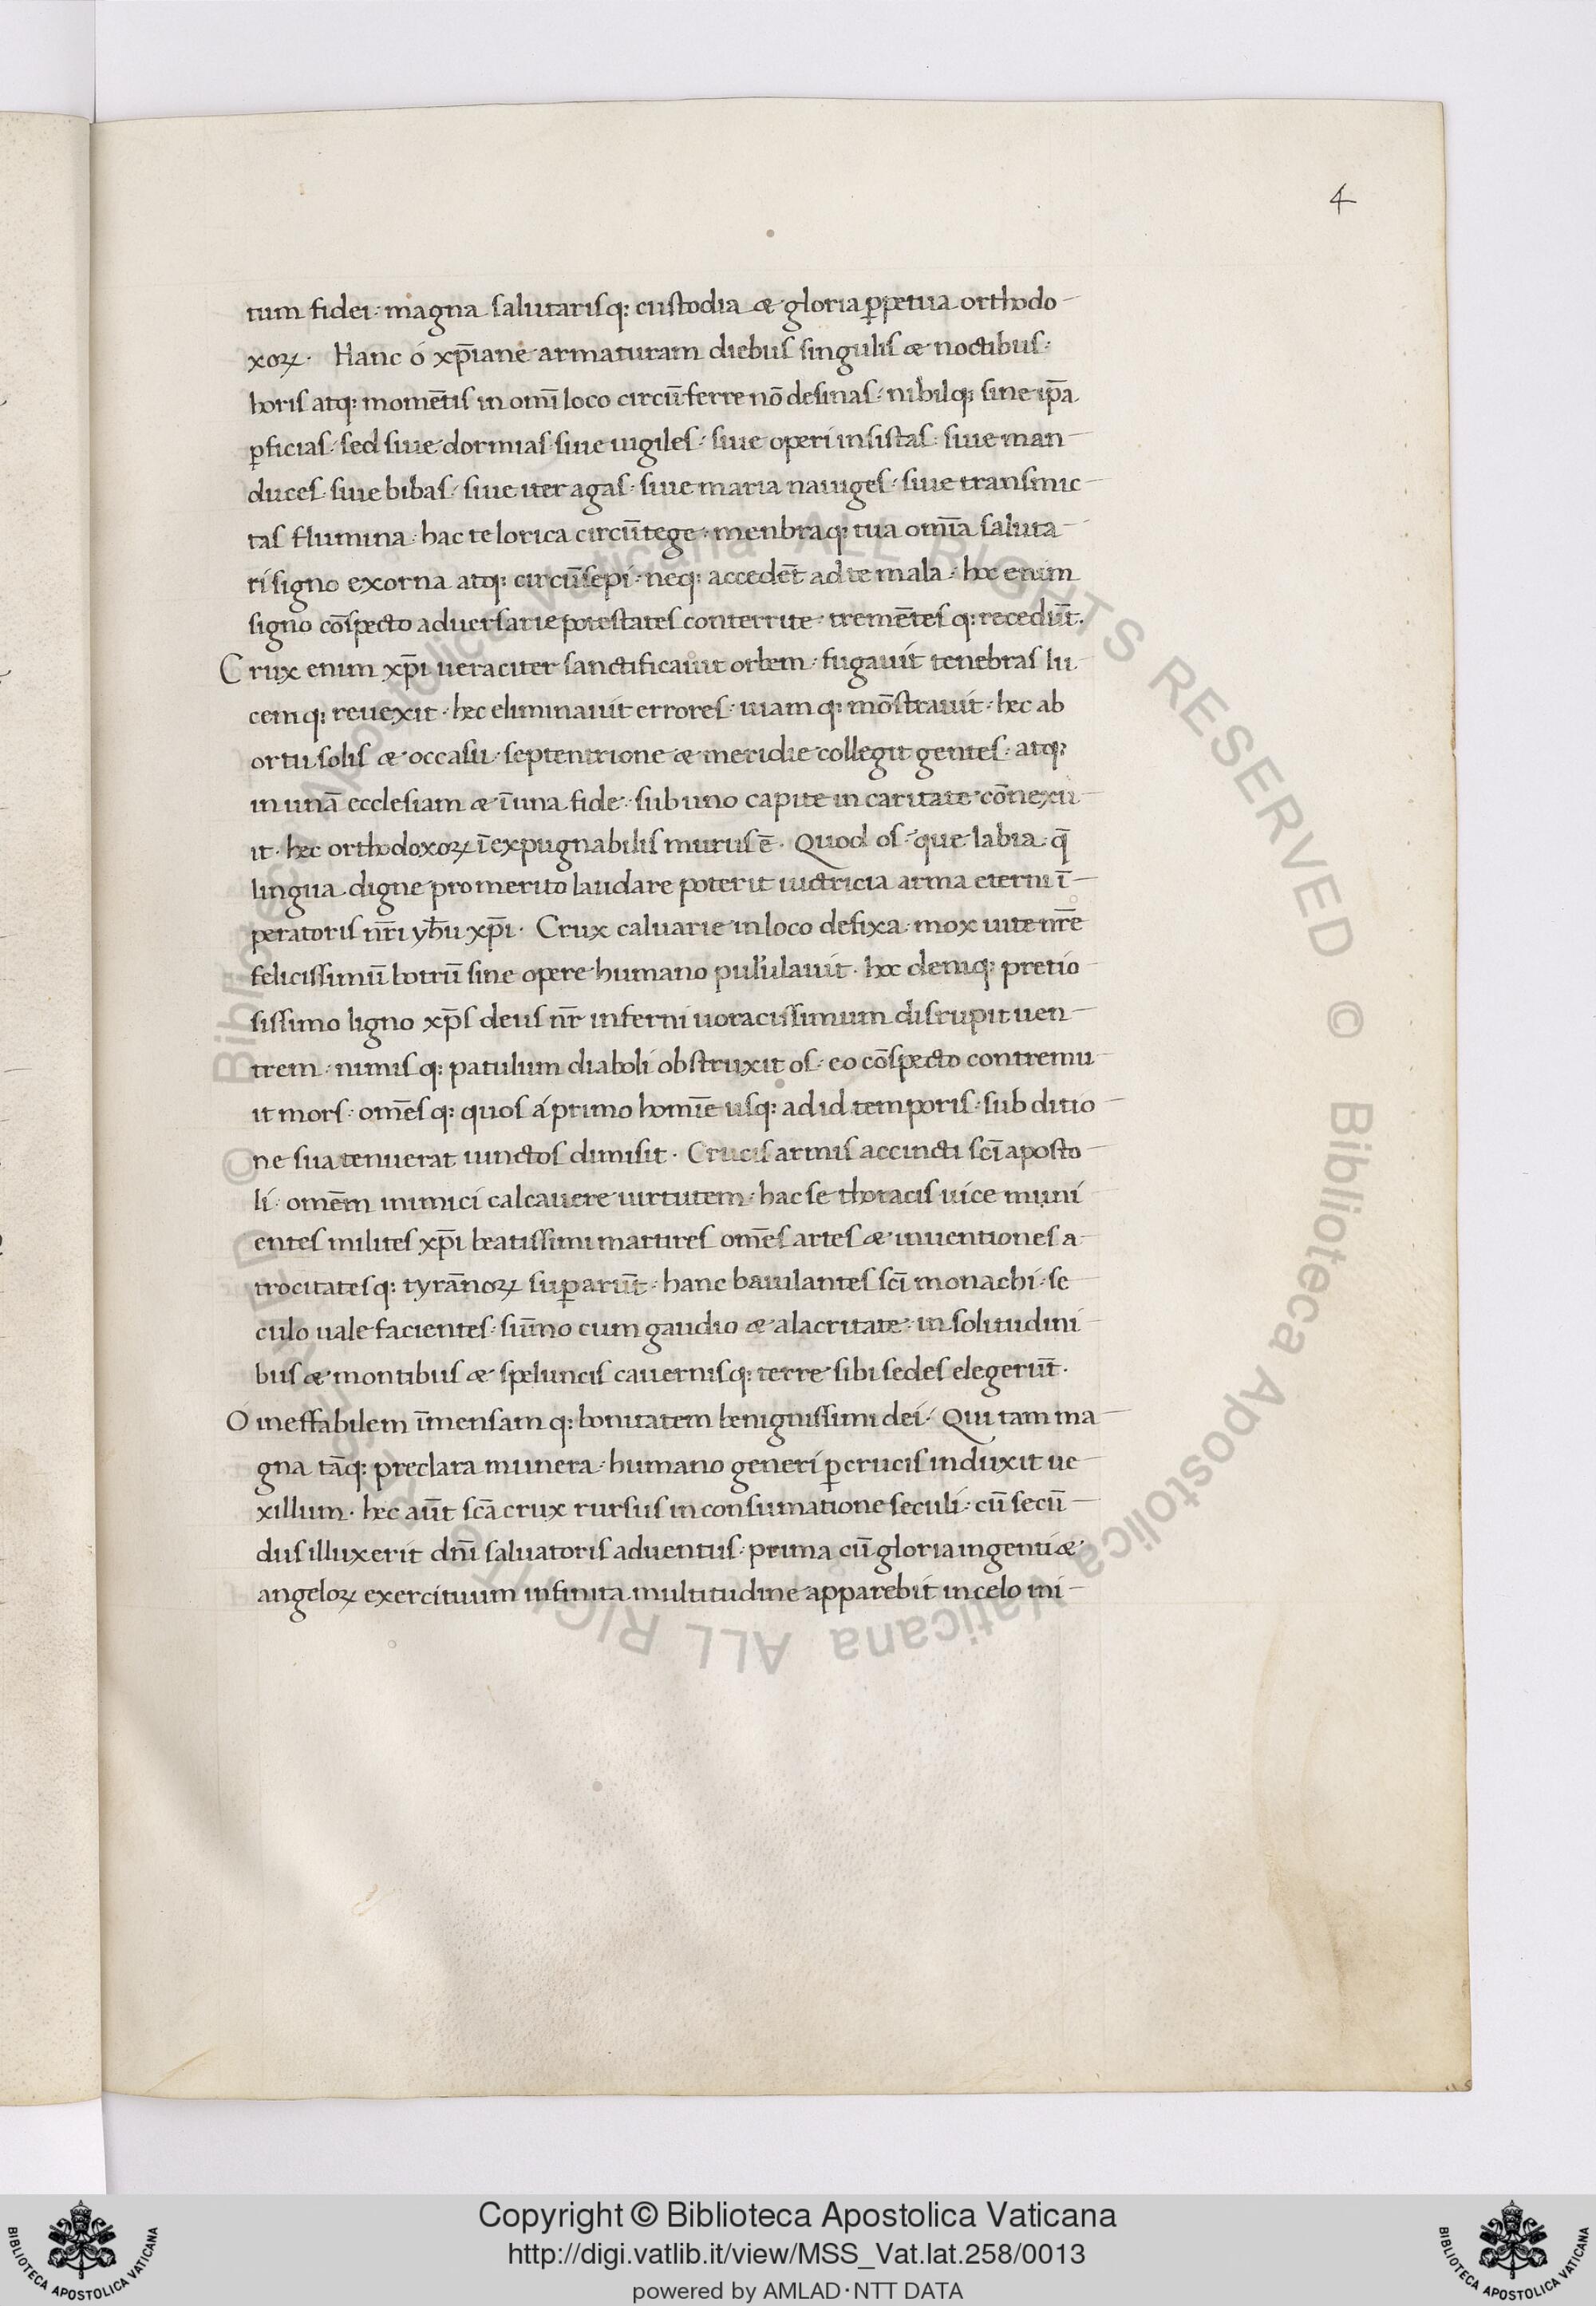 4
tum fidei· magna salutarisq: custodia & gloria ꝑpetua orthodo-
xoꝝ· Hanc ó xp̄iane armaturam diebus singulis & noctibus·
horis atq: momētis in om̄i loco circūferre nō desinas· nihilq: sine ip̄a
ꝑficias· sed siue dormias· siue uigiles· siue operi insistas· siue man-
duces· siue bibas· siue iter agas· siue maria nauiges· siue transmic-
tas flumina· hac te lorica circūtege· menbraq: tua om̄ia saluta-
ri signo exorna atq: circūsepi· neq: accedēt ad te mala· hoc enim
signo cōspecto aduersarie potestates conterrite· tremētesq: recedūt.
Crux enim xp̄i ueraciter sanctificauit orbem· fugauit tenebras lu-
cemq: reuexit· hec eliminauit errores· uiamq: mōstrauit· hec ab
ortu solis & occasu· septentrione & meridie collegit gentes· atq:
in unā ecclesiam & ī una fide· sub uno capite in caritate cōnexu-
it· hec orthodoxoꝝ īexpugnabilis murus ē· Quod os· que labia· q̄
lingua digne pro merito laudare poterit uictricia arma eterni ī-
peratoris nr̄i yhū xp̄i· Crux caluarie in loco defixa· mox uite nr̄e
felicissimū botrū sine opere humano pululauit· hoc deniq: pretio-
sissimo ligno xp̄s deus nr̄ inferni uoracissimum disrupit uen-
trem· nimisq: patulum diaboli obstruxit os· eo cōspecto contremu-
it mors· om̄esq: quos á primo homīe usq: ad id temporis· sub ditio-
ne sua tenuerat uinctos dimisit· Crucis armis accincti sc̄i aposto-
li· omēm inimici calcauere uirtutem· hac se thoracis uice muni
entes milites xp̄i beatissimi martires om̄es artes & inuentiones a-
trocitatesq: tyrānoꝝ suꝑarūt· hanc baiulantes sc̄i monachi· se-
culo uale facientes· sūmo cum gaudio & alacritate· in solitudini-
bus & montibus & speluncis cauernisq: terre· sibi sedes elegerūt·
O ineffabilem īmensamq: bonitatem benignissimi dei· Qui tam ma-
gna tāq: preclara munera· humano generi ꝑ crucis induxit ue-
xillum· hec aūt sc̄a crux rursus in consumatione seculi· cū secū-
dus illuxerit dn̄i saluatoris aduentus· prima cū gloria ingenti &
angeloꝝ exercituum infinita multitudine apparebit in celo ini-
© Biblioteca Apostolica Vaticana ALL RIGHTS RESERVED © Biblioteca Apostolica Vaticana ALL RIGHTS RESERVED
Copyright © Biblioteca Apostolica Vaticana
http://digi.vatlib.it/view/MSS_Vat.lat.258/0013
powered by AMLAD·NTT DATA
BIBLIOTECA APOSTOLICA VATICANA
BIBLIOTECA APOSTOLICA VATICANA